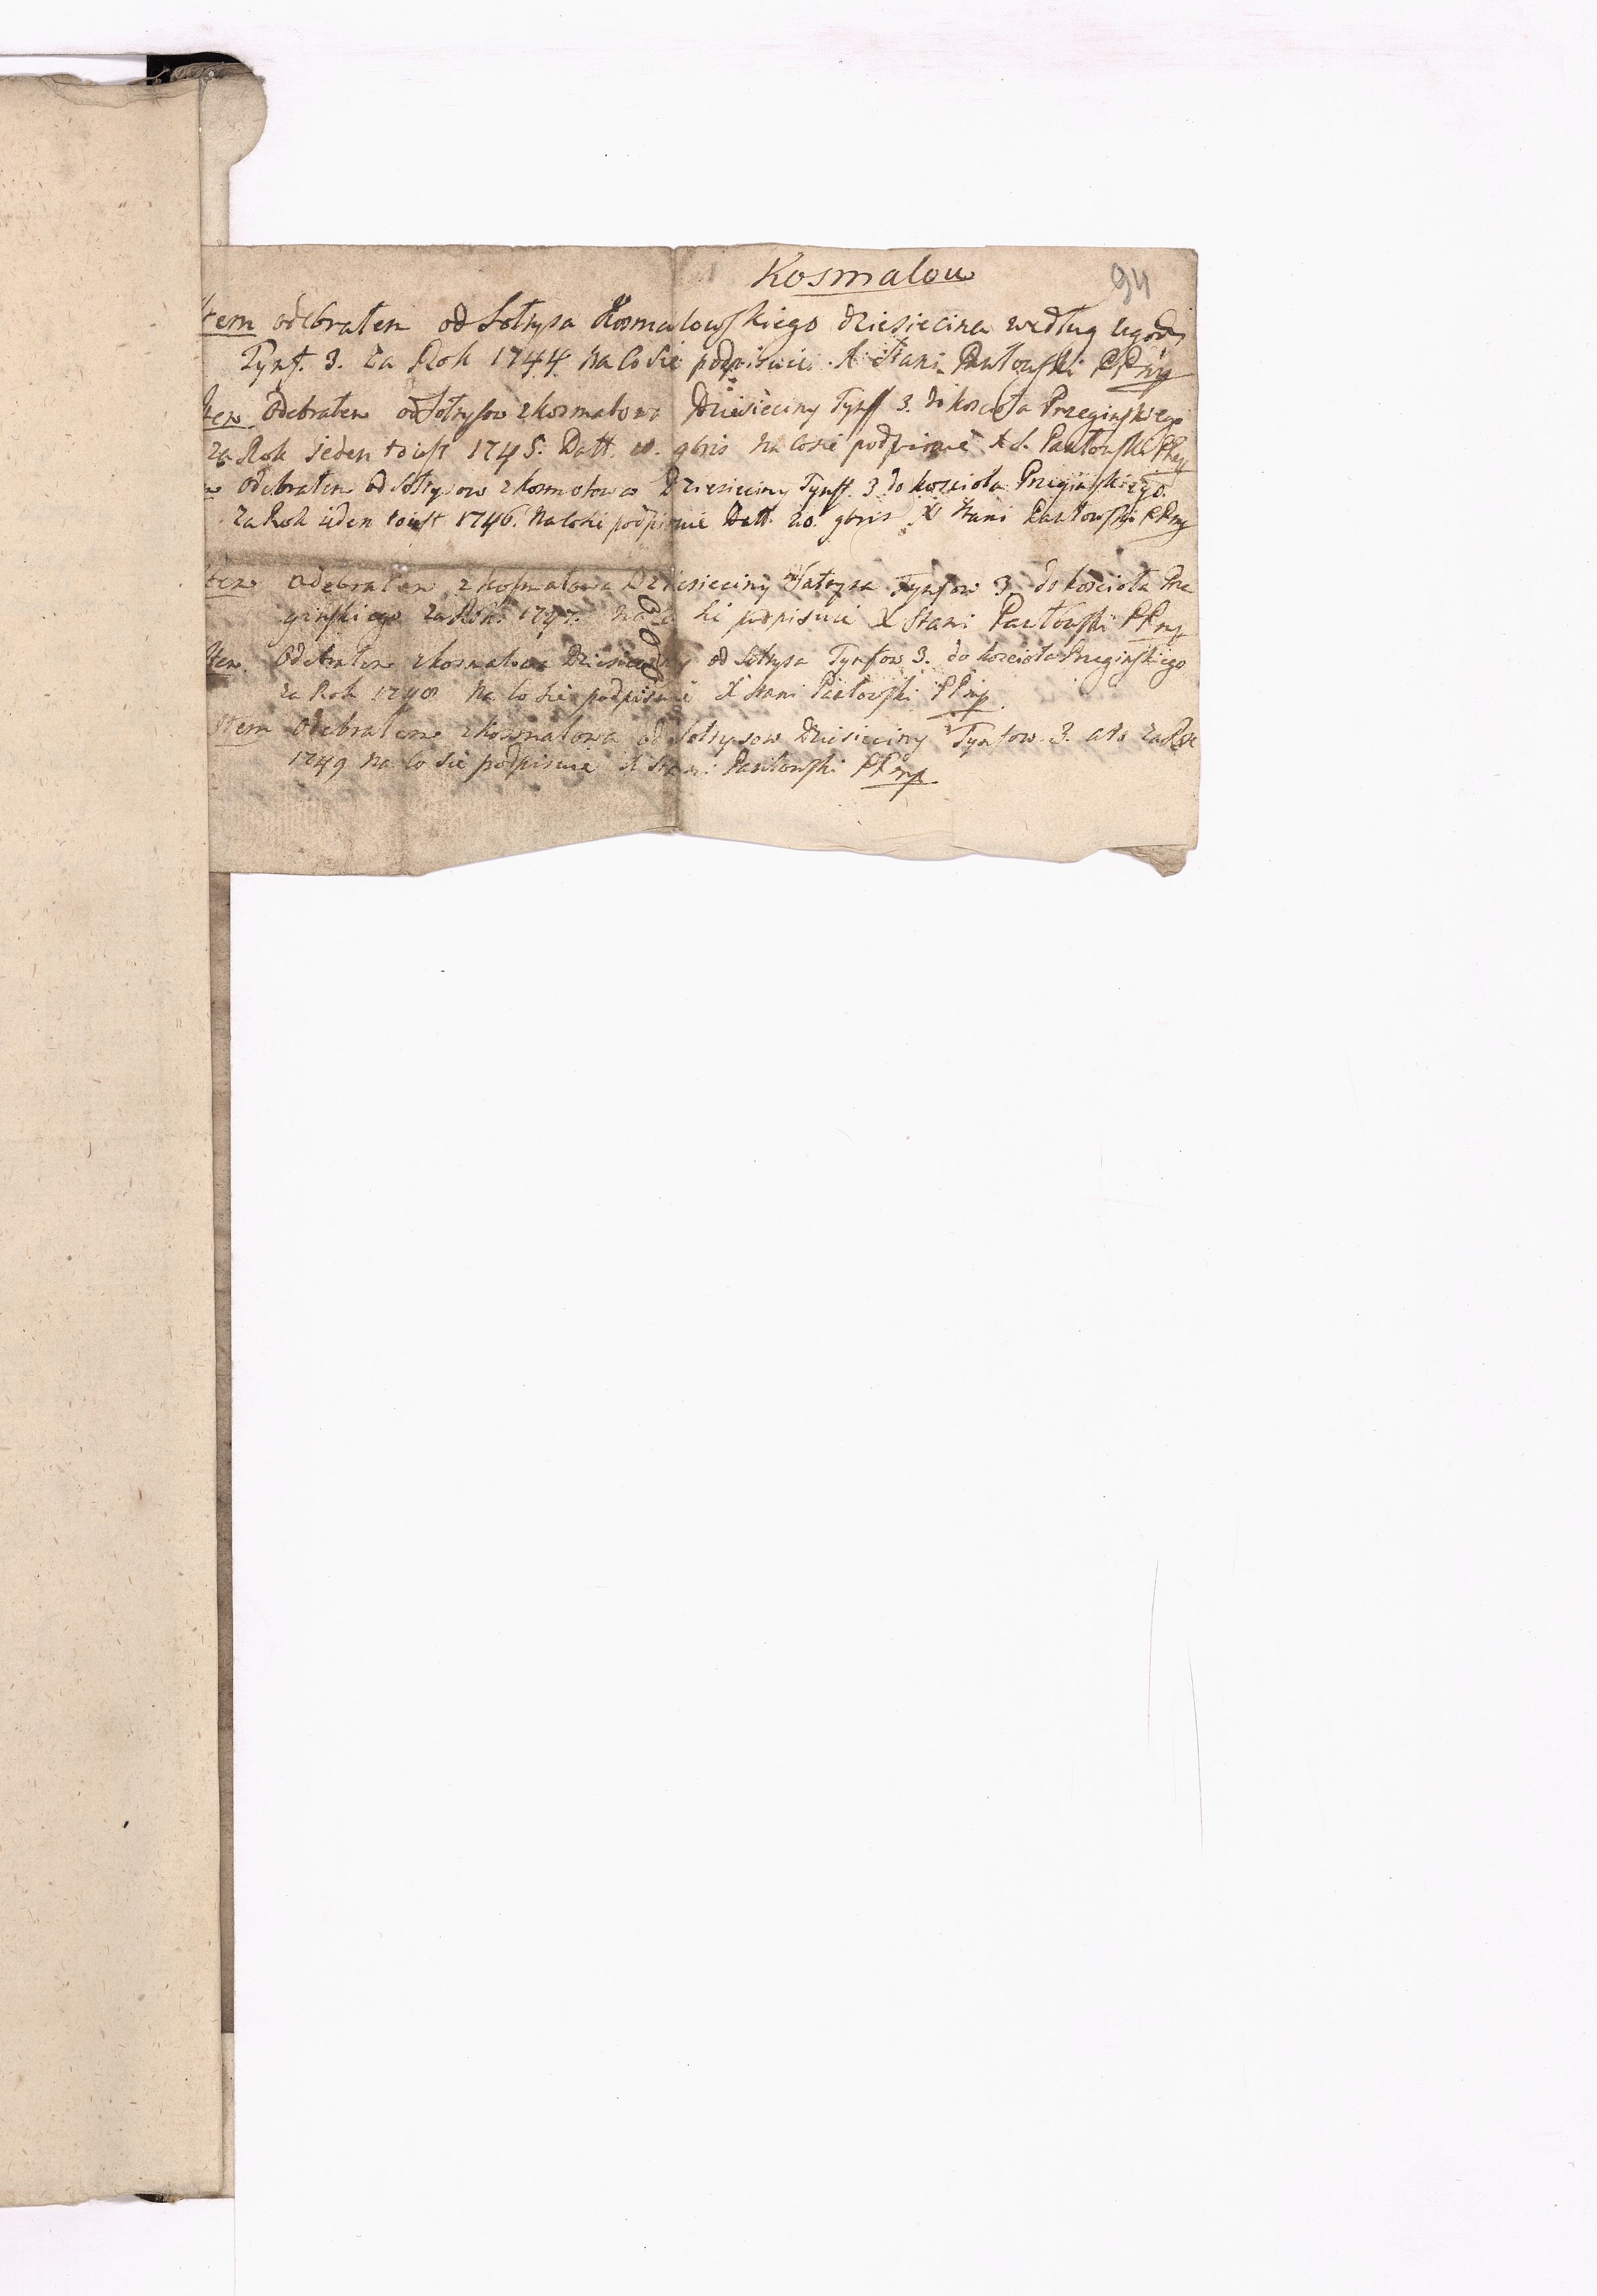 Kosmalow
94
Item odebrałem od Sołtysa Kosmalowskiego dziesiecina według ugody
Tynf. 3. Za Rok 1744 na co sie podpisuie X Stani Pawłowski PP mp
Item Odebrałem od Sołtysow z kosmalowa Dziesięciny Tynff 3. do kosciola Przeginskiego
za Rok ieden to iest 1745. Datt. 9bris na co sie podpisuie X S. Pawłowski PP mp
odebrałem od Sołtysow z kosmolowa Dziesieciny Tynff. 3 do kosciola Przeginskiego.
za Rok ieden to iest 1746. na co sie podpisuie Datt. 20. 9bris X Stani Pawłowski PP mp
Item Odebrałem z kosmalowa Dziesieciny od Sałtysa Tynfow 3 do kosciola Prze
ginskiego za Rok 1747. na co sie podpisuie X Stani Pawłowski PP mp
Item Odebrałem z kosmalowa Dziesieciny od Sołtysa Tynfow 3. do kosciola Przeginskiego
za Rok 1748 na co sie podpisuie X Stani Pawłowski PP mp
Item Odebrałem z kosmalowa od Sołtysow Dziesieciny Tynfow 3. a to za Rok
1749 na co sie podpisuie X Stani Pawłowski PP mp